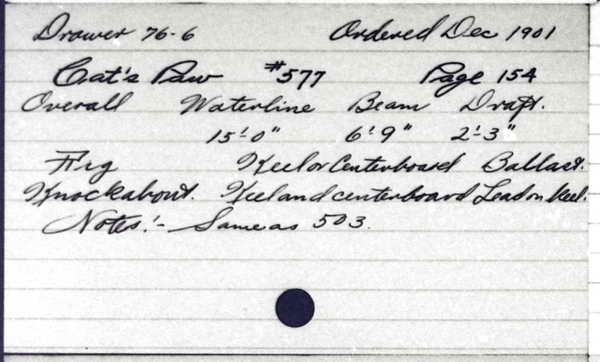 Drawer 76-6 Ordered Dec 1901
Cat's Paw #577 Page 154
Overall Waterline Beam Draft.
15'-0" 6'-9" 2'-3"
Rig Keel or Centerboard Ballast.
Knockabout. Keel and centerboard Lead on keel.
Notes:- Same as 503.